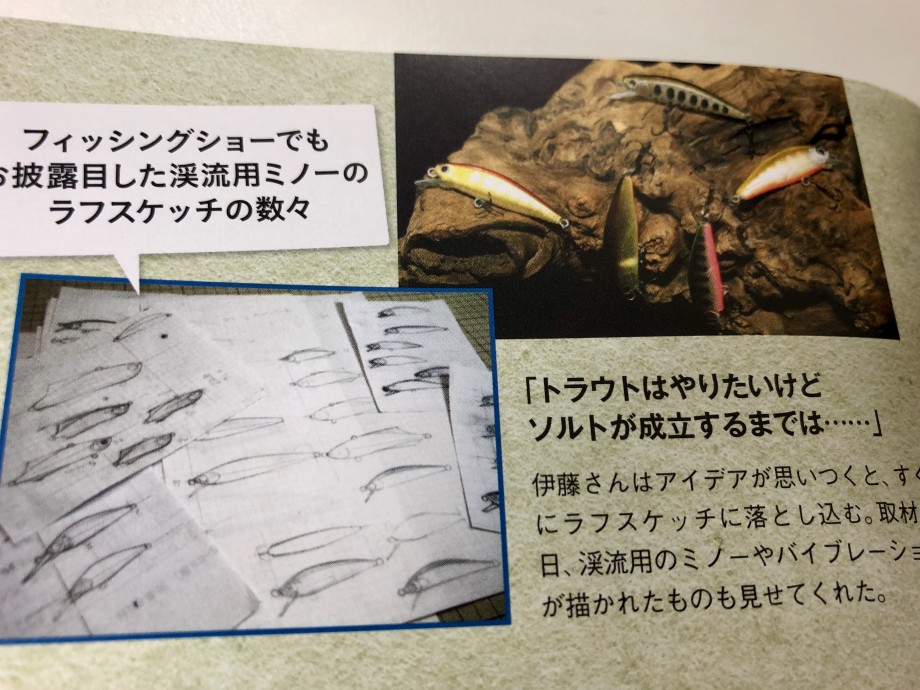 フィッシングショーでも
お披露目した渓流用ミノーの
ラフスケッチの数々
「トラウトはやりたいけど
ソルトが成立するまでは……」
伊藤さんはアイデアが思いつくと、すぐ
にラフスケッチに落とし込む。取材
日、渓流用のミノーやバイブレーショ
が描かれたものも見せてくれた。